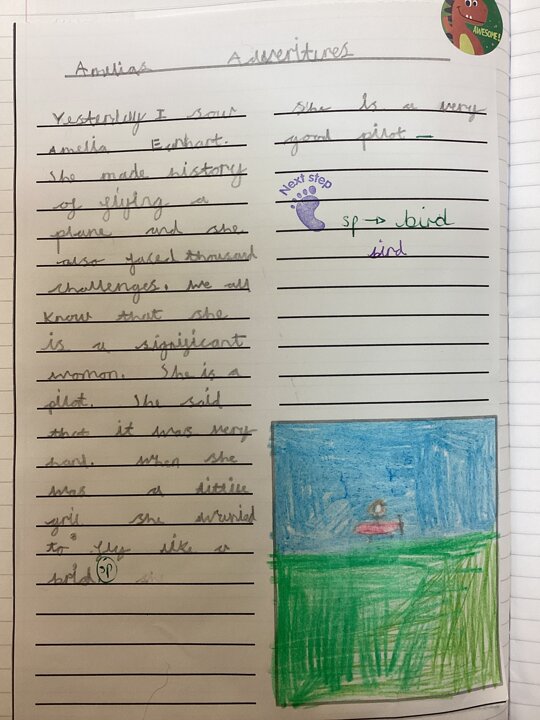 AWESOME!
Amelias Adveritures
Yesterday I saw
Amelia Earhart.
She made history
of flying a
plane and she
also faced thousand
challenges. We all
know that she
is a significant
woman. She is a
pilot. She said
that it was very
hard. When she
was a little
she
to fly like a
brid sp
She is a very
good pilot
Next step
sp → bird
bird